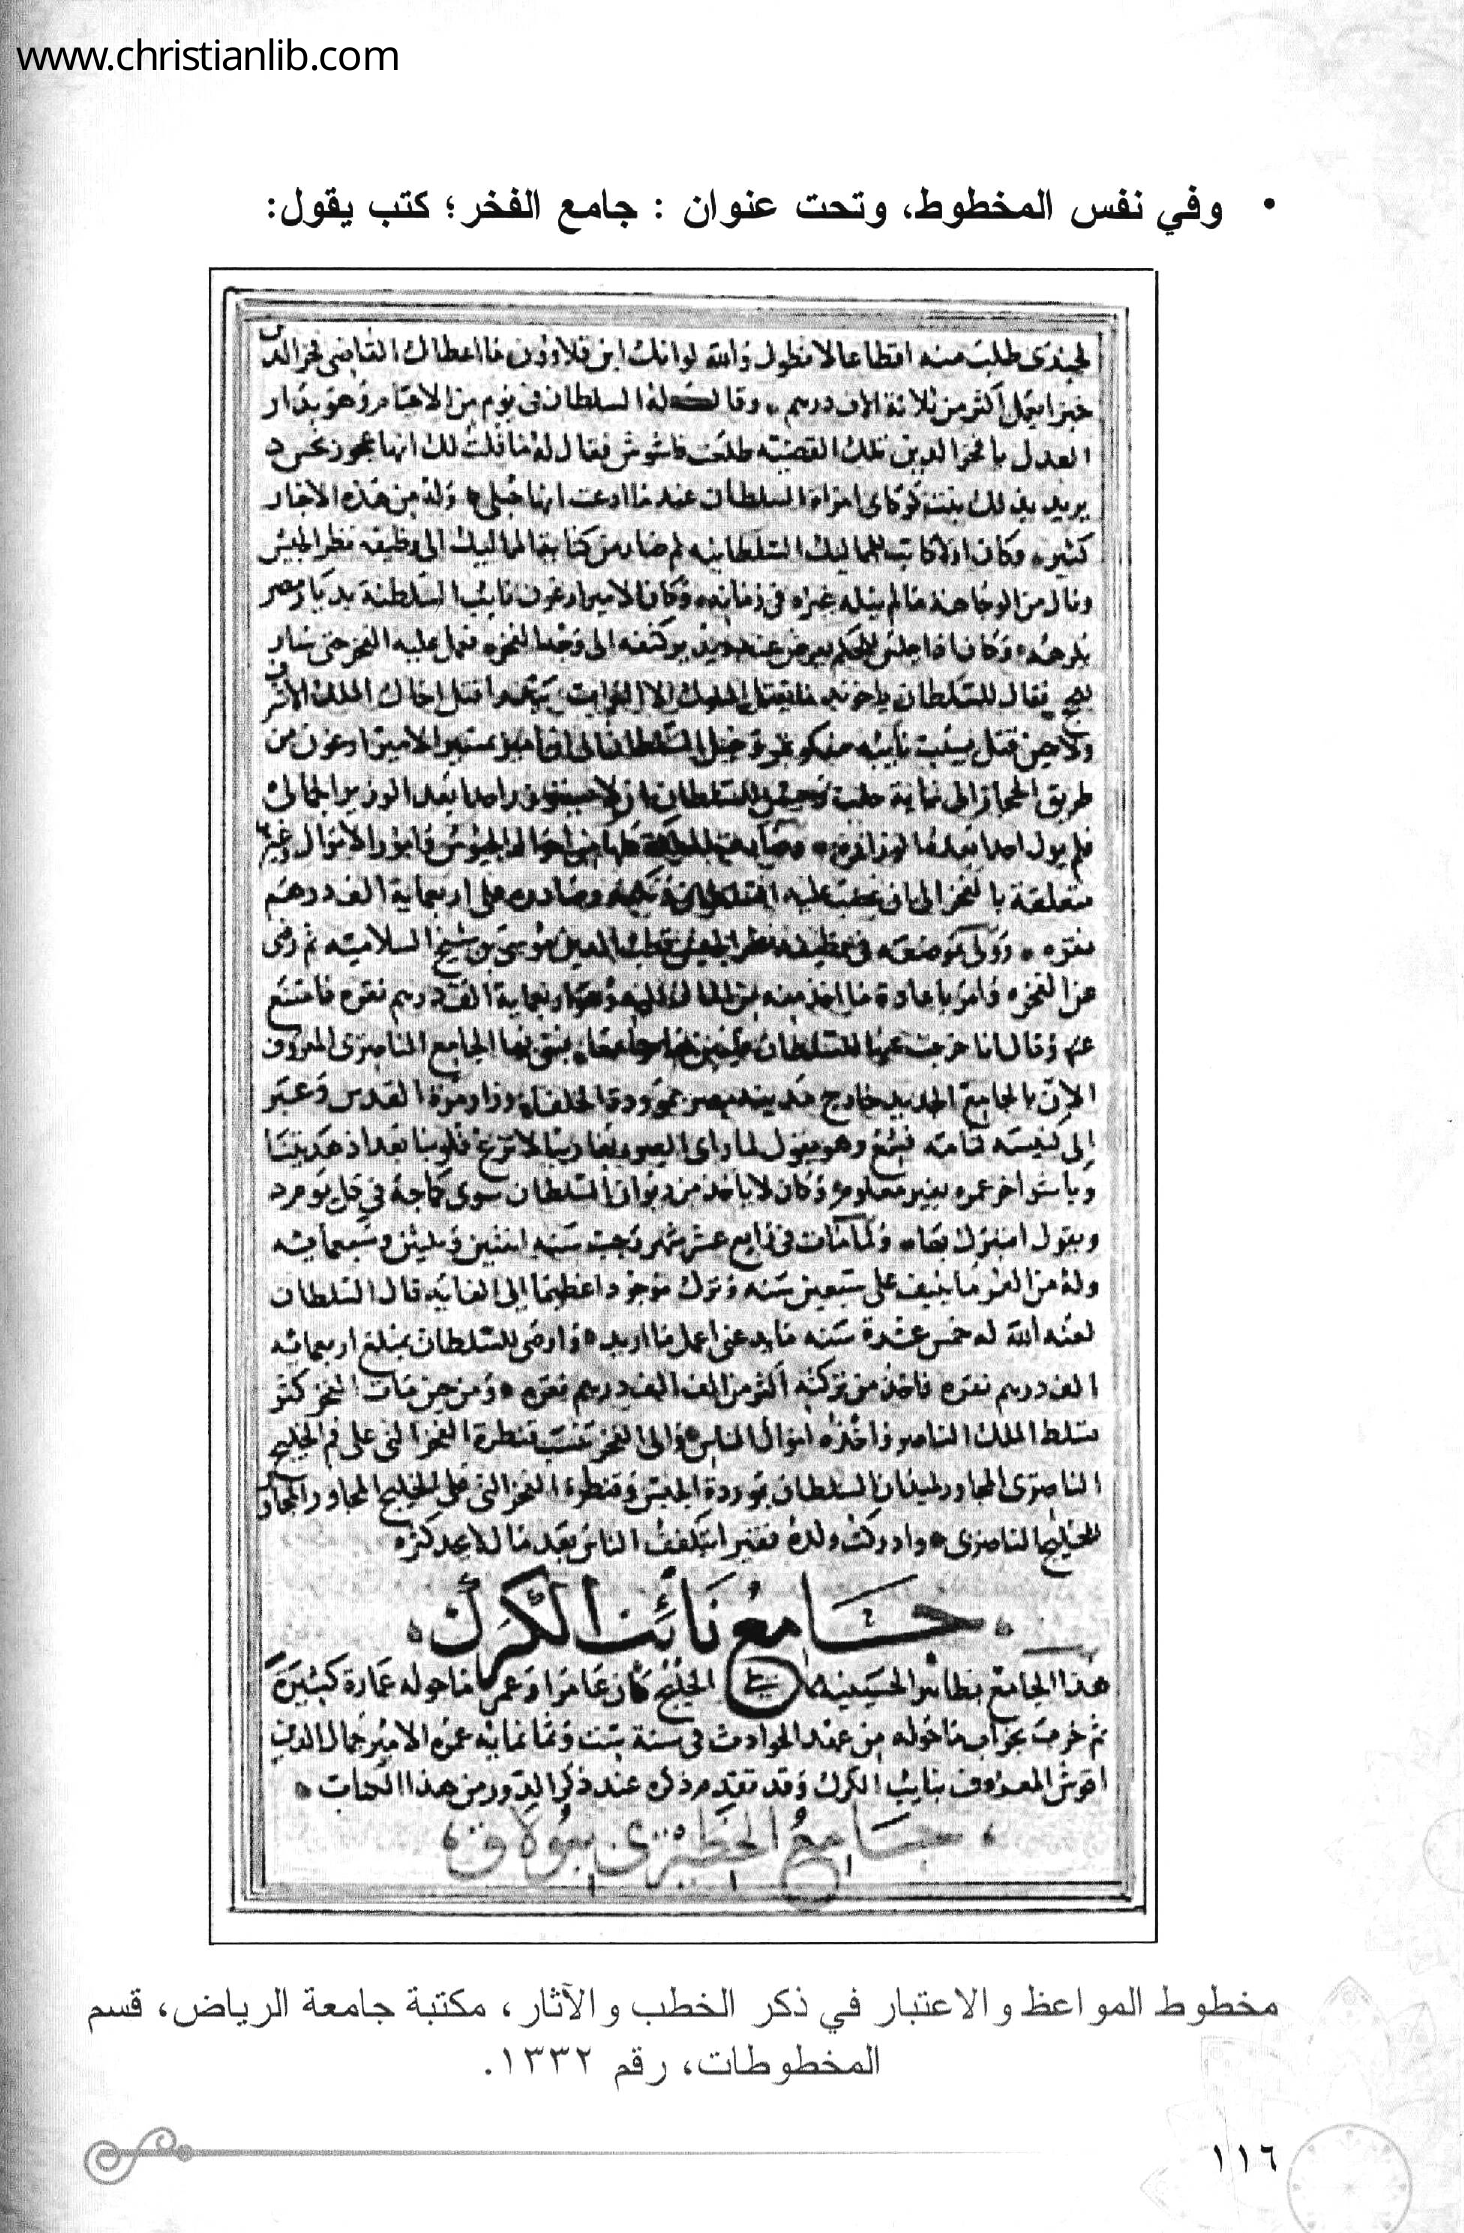 www.christianlib.com
• وفي نفس المخطوط، وتحت عنوان : جامع الفخر؛ كتب يقول:
لجندى طلب منه اقطاعا لا تطول والله لوانك ابن قلاوون ما اعطاك القاضى فخر الدين
خبزا يعمل اكثر من ثلاثة الاف درهم وقال له السلطان فى يوم من الايام وهو بدار
العدل يا فخر الدين تلك القضيه طلعت فاشوش فقال له ما قلت لك انها عجوز نحس
يريد بذلك بنت كوكاى امراة السلطان عند ما ادعت انها حبلى وله من هذه الاخبار
كثير وكان اولا كاتب المماليك السلطانيه ثم صار من كتابة المماليك الى وظيفه نظر الجيش
ونال من الوجاهة ما لم ينله غيره فى زمانه وكان الامير ارغون نايب السلطنة بديار مصر
يكرهه وكان اذا جلس للحكم يعرض عنه ويدير كتفه الى وجه الفخر فعمل عليه الفخر حتى سار
للحج فقال للسلطان يا خوند ما يقتل الملوك الا النواب بيدرا قتل اخاك الملك الاشرف
ولاجين قتل بسبب نايبه منكوتمر
طريق الحجاز الى نيابة حلب وحسن للسلطان ان لا يستوزر احدا بعد الوزير الجمالى
فلم يول احدا بعده الوزارة وصارت المملكة كلها من احوال الجيوش وامور الاموال وغيرها
متعلقة بالفخر الى ان غضب عليه السلطان ونكبه وصادره على اربعماية الف درهم
نقره وولى موضعه فى وظيفه نظر الجيش قطب الدين موسى بن شيخ السلاميه ثم رضى
عن الفخر وامر باعادة ما اخذ منه من المال اليه وهو اربعماية الف درهم نقره فامتنع
وقال انا خرجت عنها للسلطان فليبن بها جامعا بنى بها الجامع الناصرى المعروف
الان بالجامع الجديد خارج مدينة مصر بموردة الخلفاء وزار مرة القدس وعبر
الى كنيسه قمامه فسمع وهو يقول لما راى الصور بها ربنا لا تزغ قلوبنا بعد اذ هديتنا
وباشر اخر عمره بغير معلوم وكان لا ياخذ من ديوان السلطان سوى كماجة فى كل يوم
ويقول اتبرك بها ولما مات فى رابع عشر شهر رجب سنه اثنتين وثلثين وسبعمايه
وله من العمر ما ينيف على سبعين سنه وترك موجودا عظيما الى الغايه قال السلطان
لعنه الله له خمس عشرة سنه ما يدعنى اعمل ما اريد واوصى للسلطان بمبلغ اربعمايه
الف درهم نقره فاخذ من تركته اكثر من الف الف درهم نقره ومن حين مات الفخر كثر
تسلط الملك الناصر واخذه اموال الناس والى الفخر تنسب قنطرة الفخر التى على فم الخليج
الناصرى المجاور لميدان السلطان بموردة الجبس وقنطرة الفخر التى على الخليج المجاور
للخليج الناصرى وادركت ولده فقيرا يتكفف الناس بعد مال لا يعد كثره
جامع نائب الكرك
هذا الجامع بظاهر الحسينيه مما يلى الخليج كان عامرا وعمر ما حوله عمارة كبيرة
ثم خرب بخراب ما حوله من عهد الحوادث فى سنة ست وثمانمايه عمره الامير جمال الدين
اقوش المعروف بنايب الكرك وقد تقدم ذكره عند ذكر الدور من هذا الكتاب
جامع الخطيرى ببولاق
مخطوط المواعظ والاعتبار في ذكر الخطب والآثار، مكتبة جامعة الرياض، قسم
المخطوطات، رقم ١٣٣٢.
١١٦